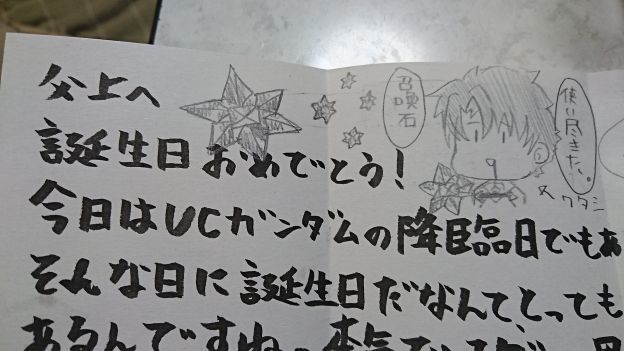 父上へ
召喚石
使い尽きた。
誕生日おめでとう!
今日はUCガンダムの降臨日でもあ
そんな日に誕生日だなんて、とっても
あるんですね。本気で